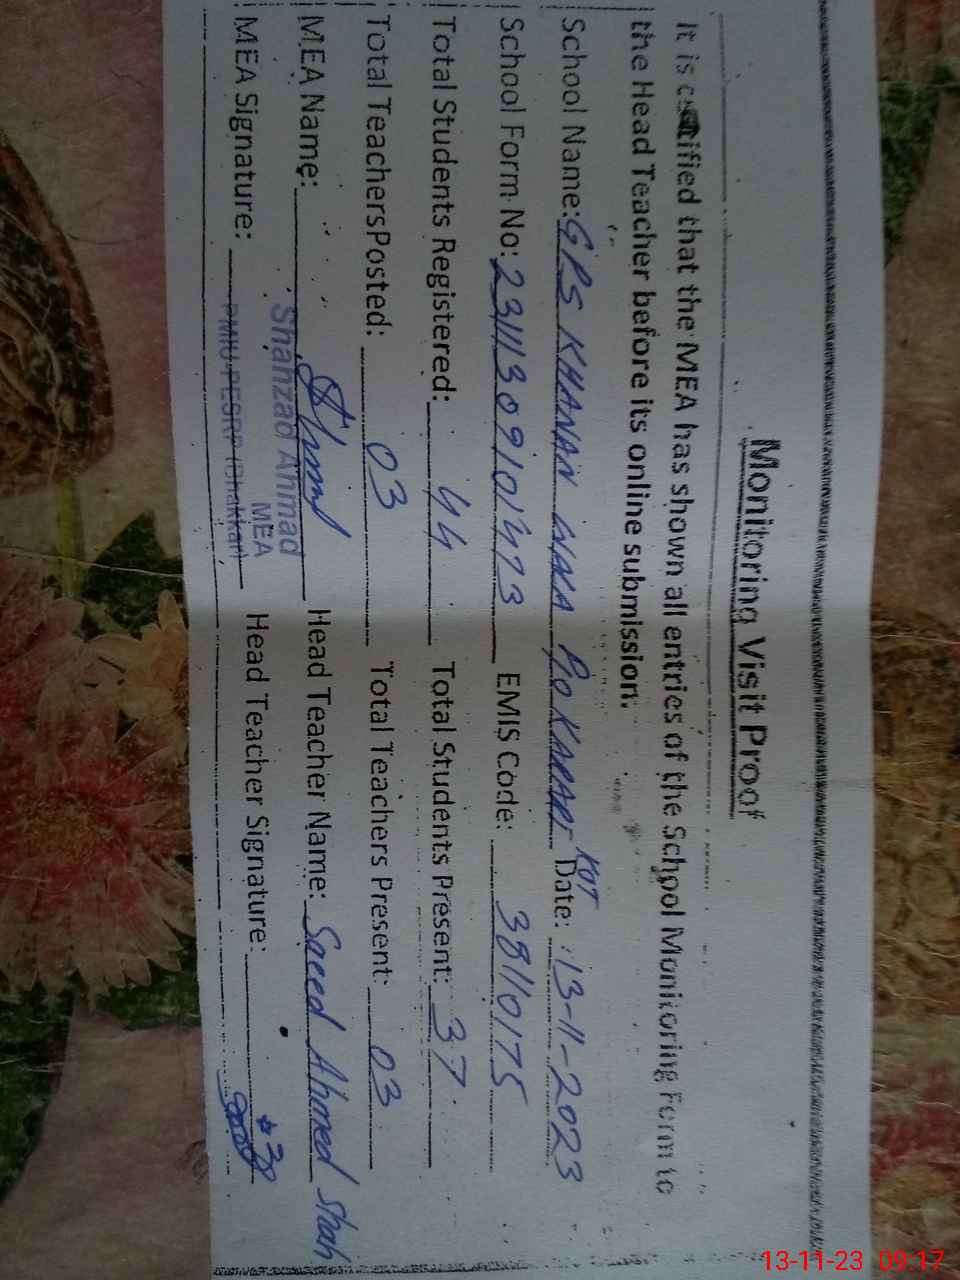 Monitoring Visit Proof
It is certified that the MEA has shown all entries of the School Monitoring Form to
the Head Teacher before its online submission.
School Name: GPS KHANAN WALA P/O KARARI KOT Date: 13-11-2023
School Form No: EMIS Code: 38110175
Total Students Registered: 44 Total Students Present: 37
Total Teachers Posted: 03 Total Teachers Present: 03
MEA Name: Head Teacher Name: Saeed Ahmed Shah
Shahzad Ahmad
MEA
MEA Signature: PMIU-PESRP (Bhakkar) Head Teacher Signature:
13-11-23 09:17